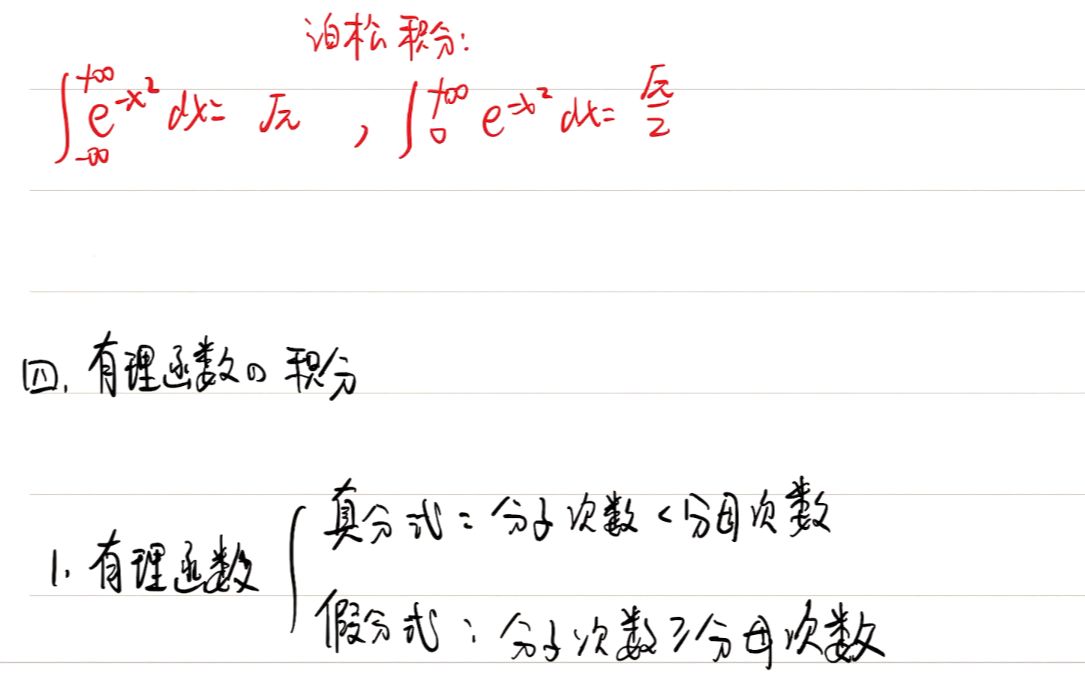 泊松积分:
∫_{-∞}^{+∞} e^{-x²} dx = √π , ∫_0^{+∞} e^{-x²} dx = √π/2
四. 有理函数の积分
1. 有理函数 { 真分式: 分子次数 < 分母次数
假分式: 分子次数 ≥ 分母次数